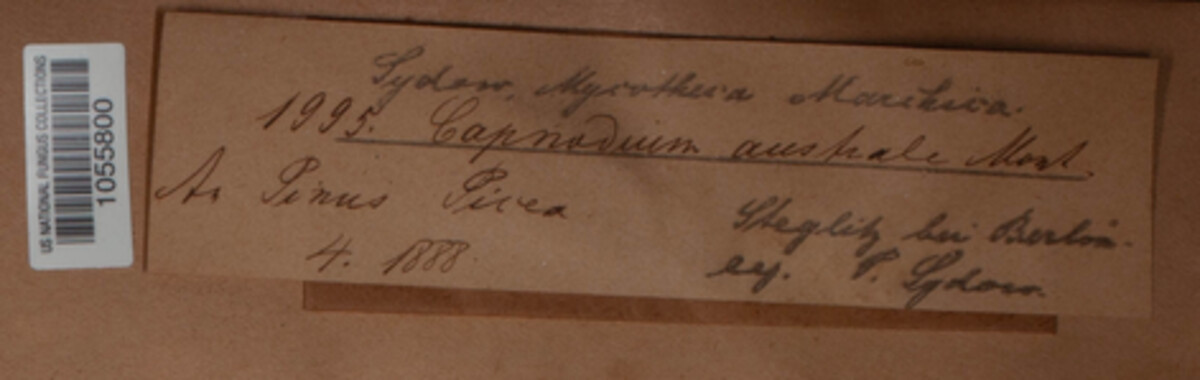 US NATIONAL FUNGUS COLLECTIONS
1055800
Sydow, Mycotheca Marchica.
1995. Capnodium australe Mont.
An Pinus Picea
Steglitz bei Berlin.
4. 1888.
leg. P. Sydow.